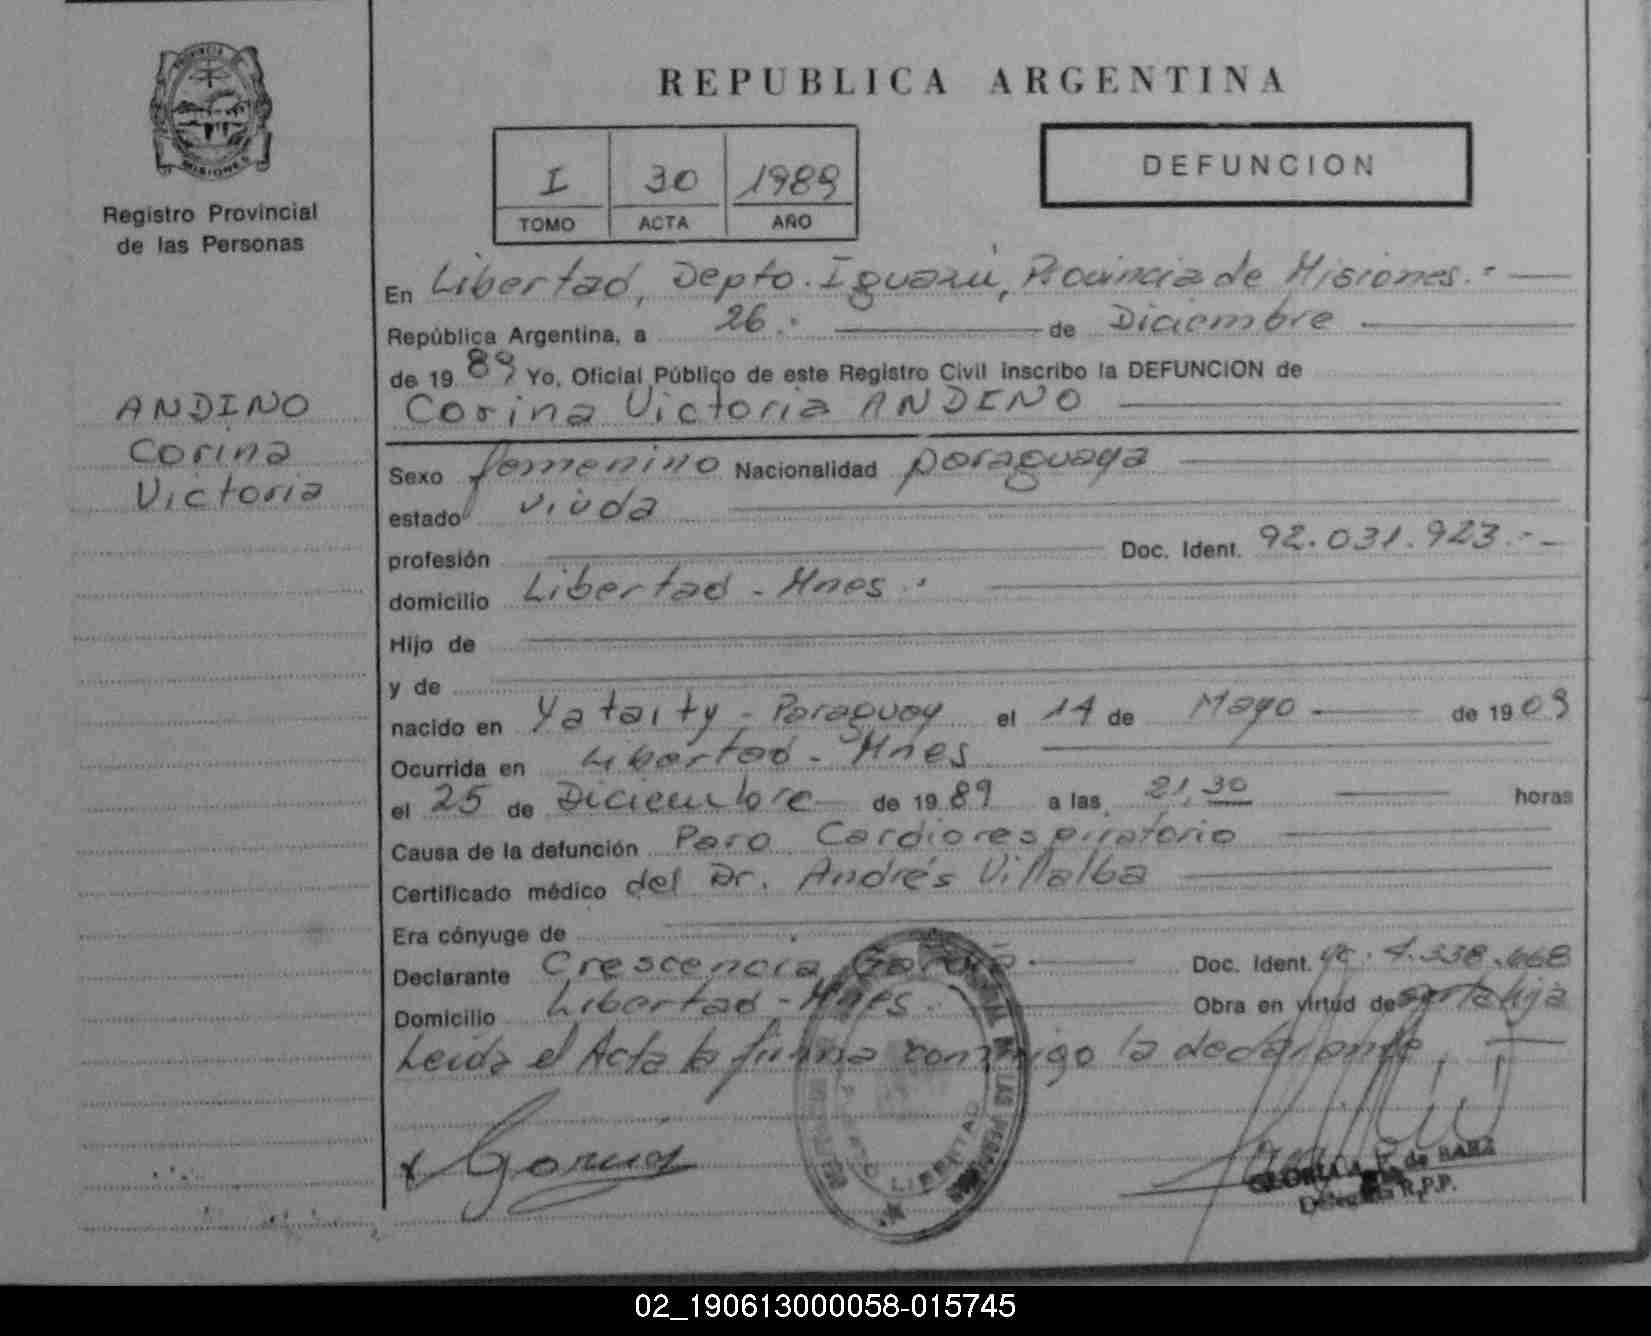 PROVINCIA
MISIONES
Registro Provincial
de las Personas
ANDINO
Corina
Victoria
REPUBLICA ARGENTINA
I 30 1989
TOMO ACTA AÑO
DEFUNCION
En Libertad, Depto. Iguazú, Provincia de Misiones.-
República Argentina, a 26.- de Diciembre
de 19 89, Yo, Oficial Público de este Registro Civil inscribo la DEFUNCION de
Corina Victoria ANDINO
Sexo femenino Nacionalidad paraguaya
estado viuda
profesión Doc. Ident. 92.031.923.-
domicilio Libertad - Mnes.
Hijo de
y de
nacido en Yataity - Paraguay el 14 de Mayo de 19 09
Ocurrida en Libertad - Mnes
el 25 de Diciembre de 19 89 a las 21,30 horas
Causa de la defunción Paro Cardiorespiratorio
Certificado médico del Dr. Andrés Villalba
Era cónyuge de
Declarante Crescencia Doc. Ident. 4.338.668
Domicilio Libertad - Mnes. Obra en virtud de ser la hija
Leída el Acta la firma conmigo la declarante,
LIBERTAD
GLORIA A. de BABA
Delegada R.P.P.
02_190613000058-015745